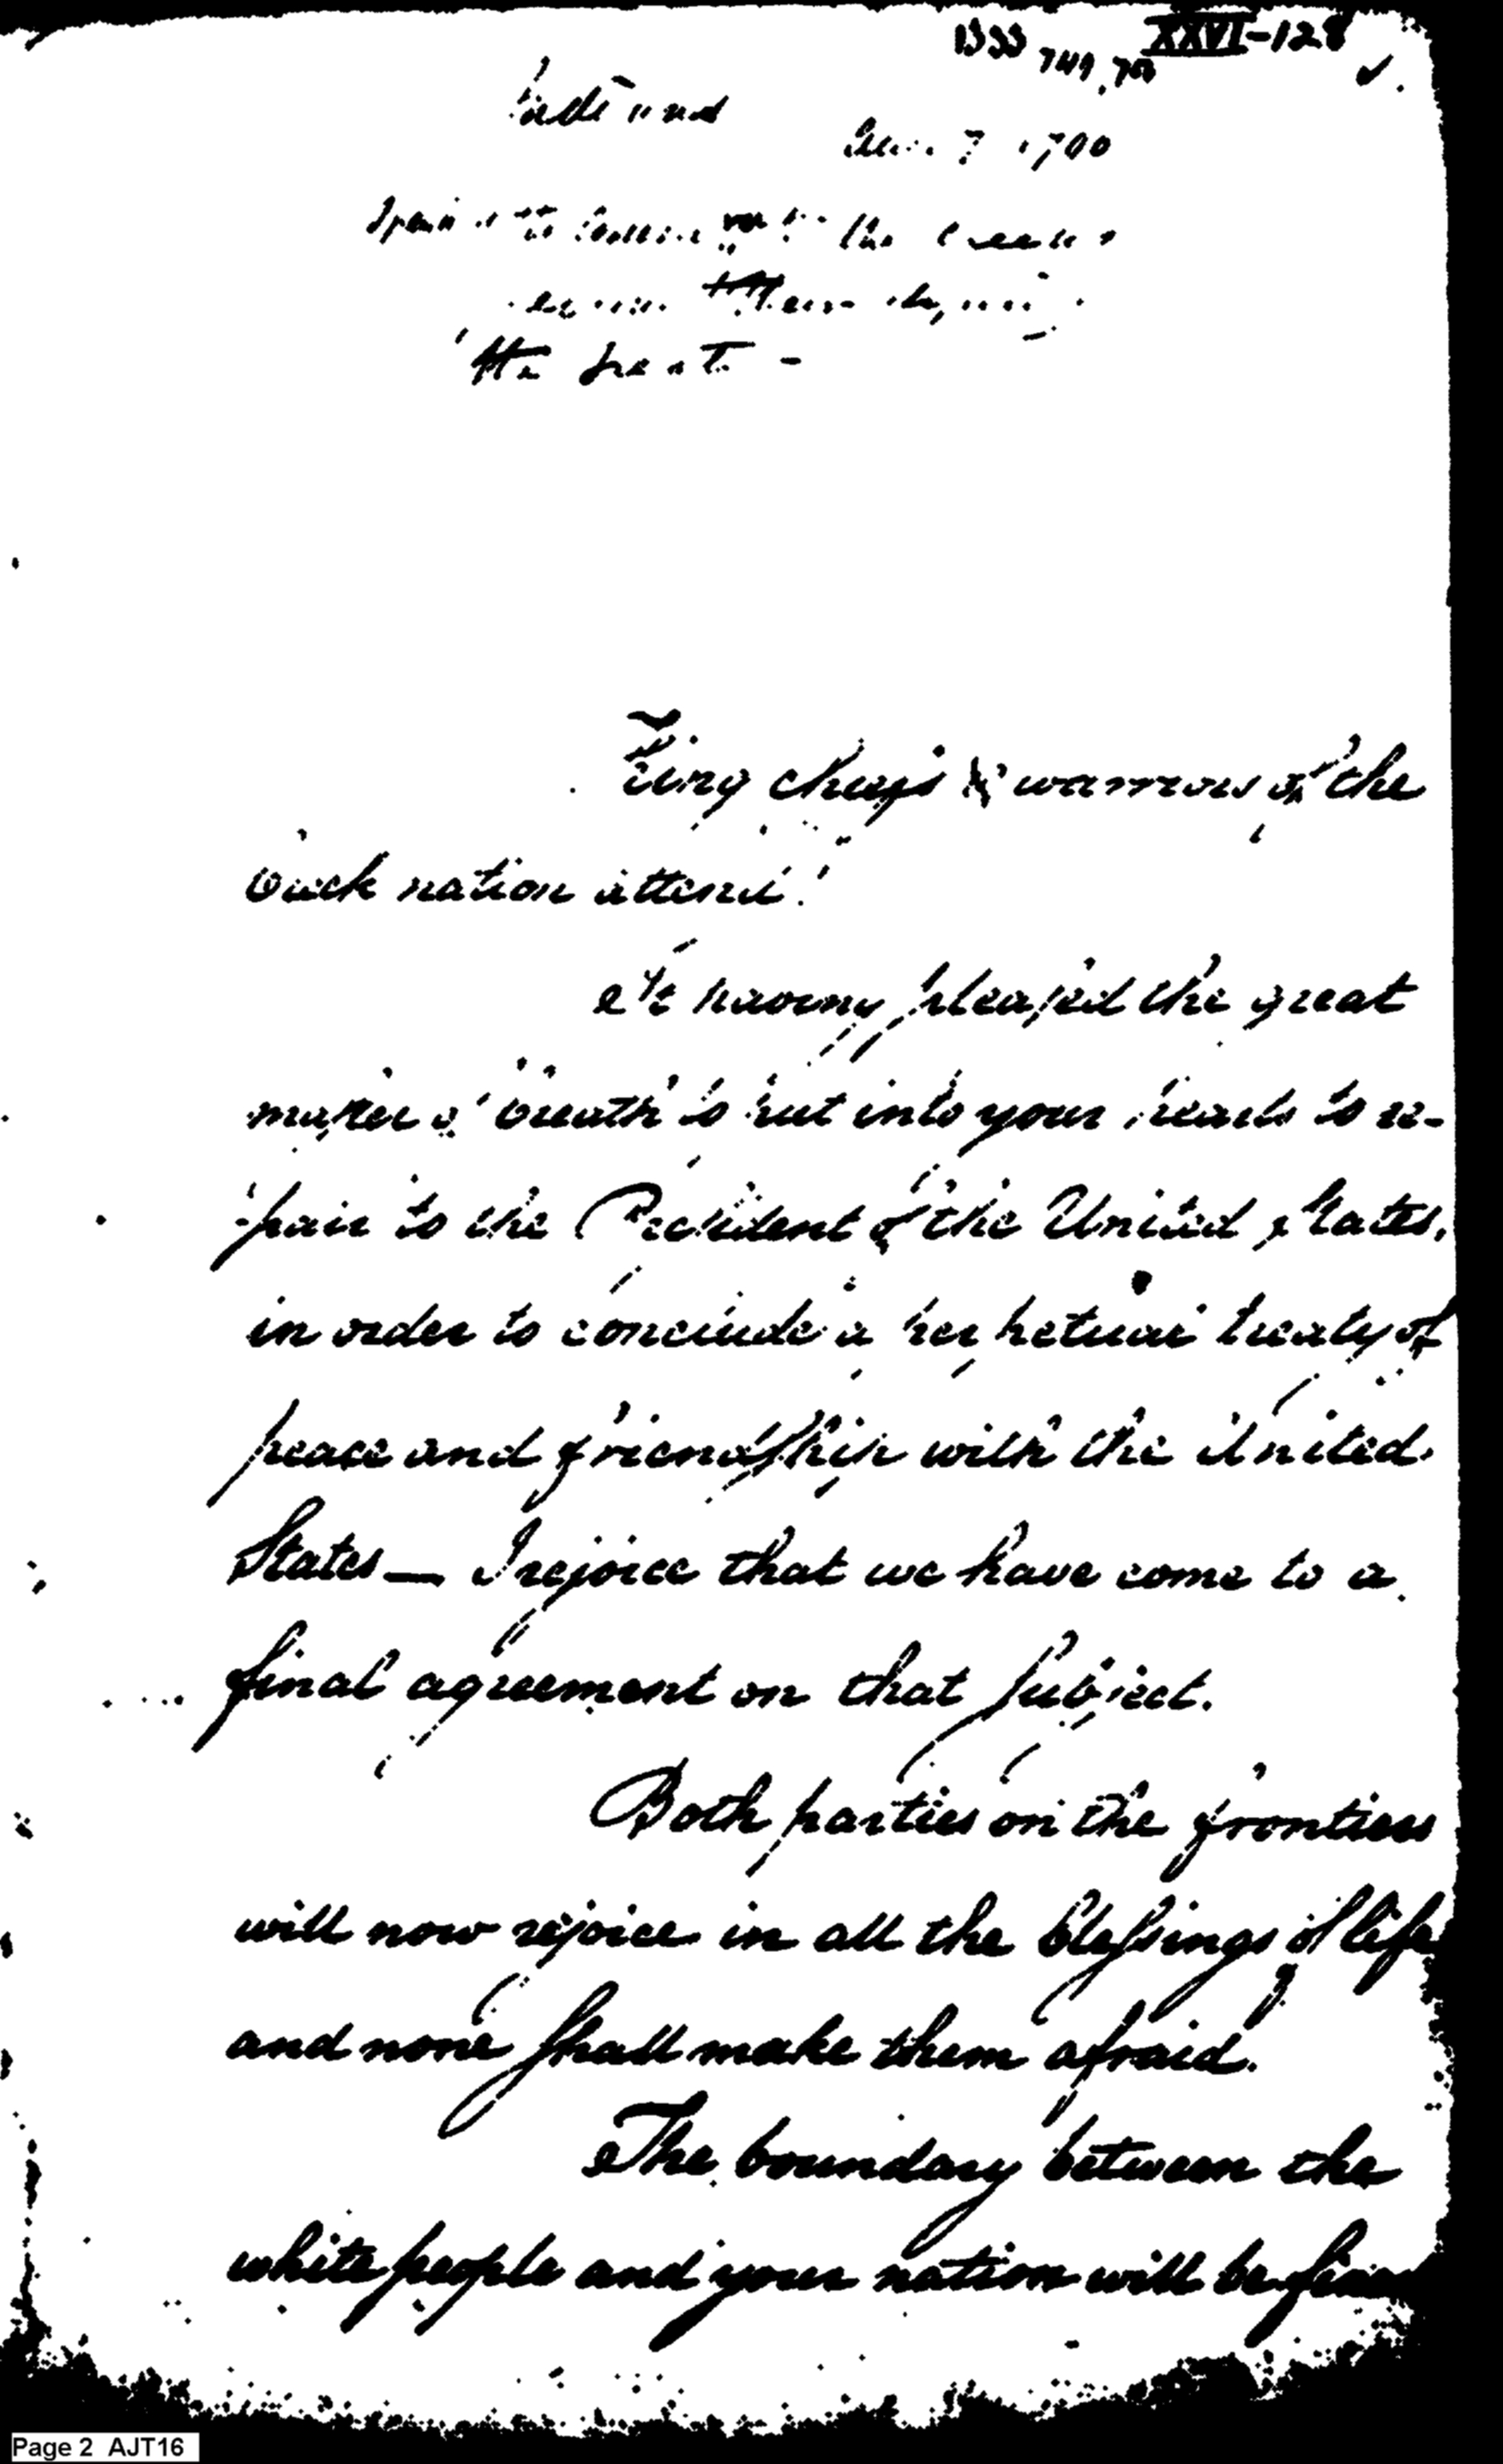 XXVI-128
7 1790
to the
the
King chiefs & warriors of the
Creek nation attend!
It having pleased the great
master of breath to put into your hearts to re-
pair to the President of the United States,
in order to conclude a perpetual treaty of
peace and friendship with the United
States — I rejoice that we have come to a
final agreement on that subject.
Both parties on the frontiers
will now rejoice in all the blessings of life
and none shall make them afraid.
The boundary between the
white people and your nation will be
Page 2 AJT16